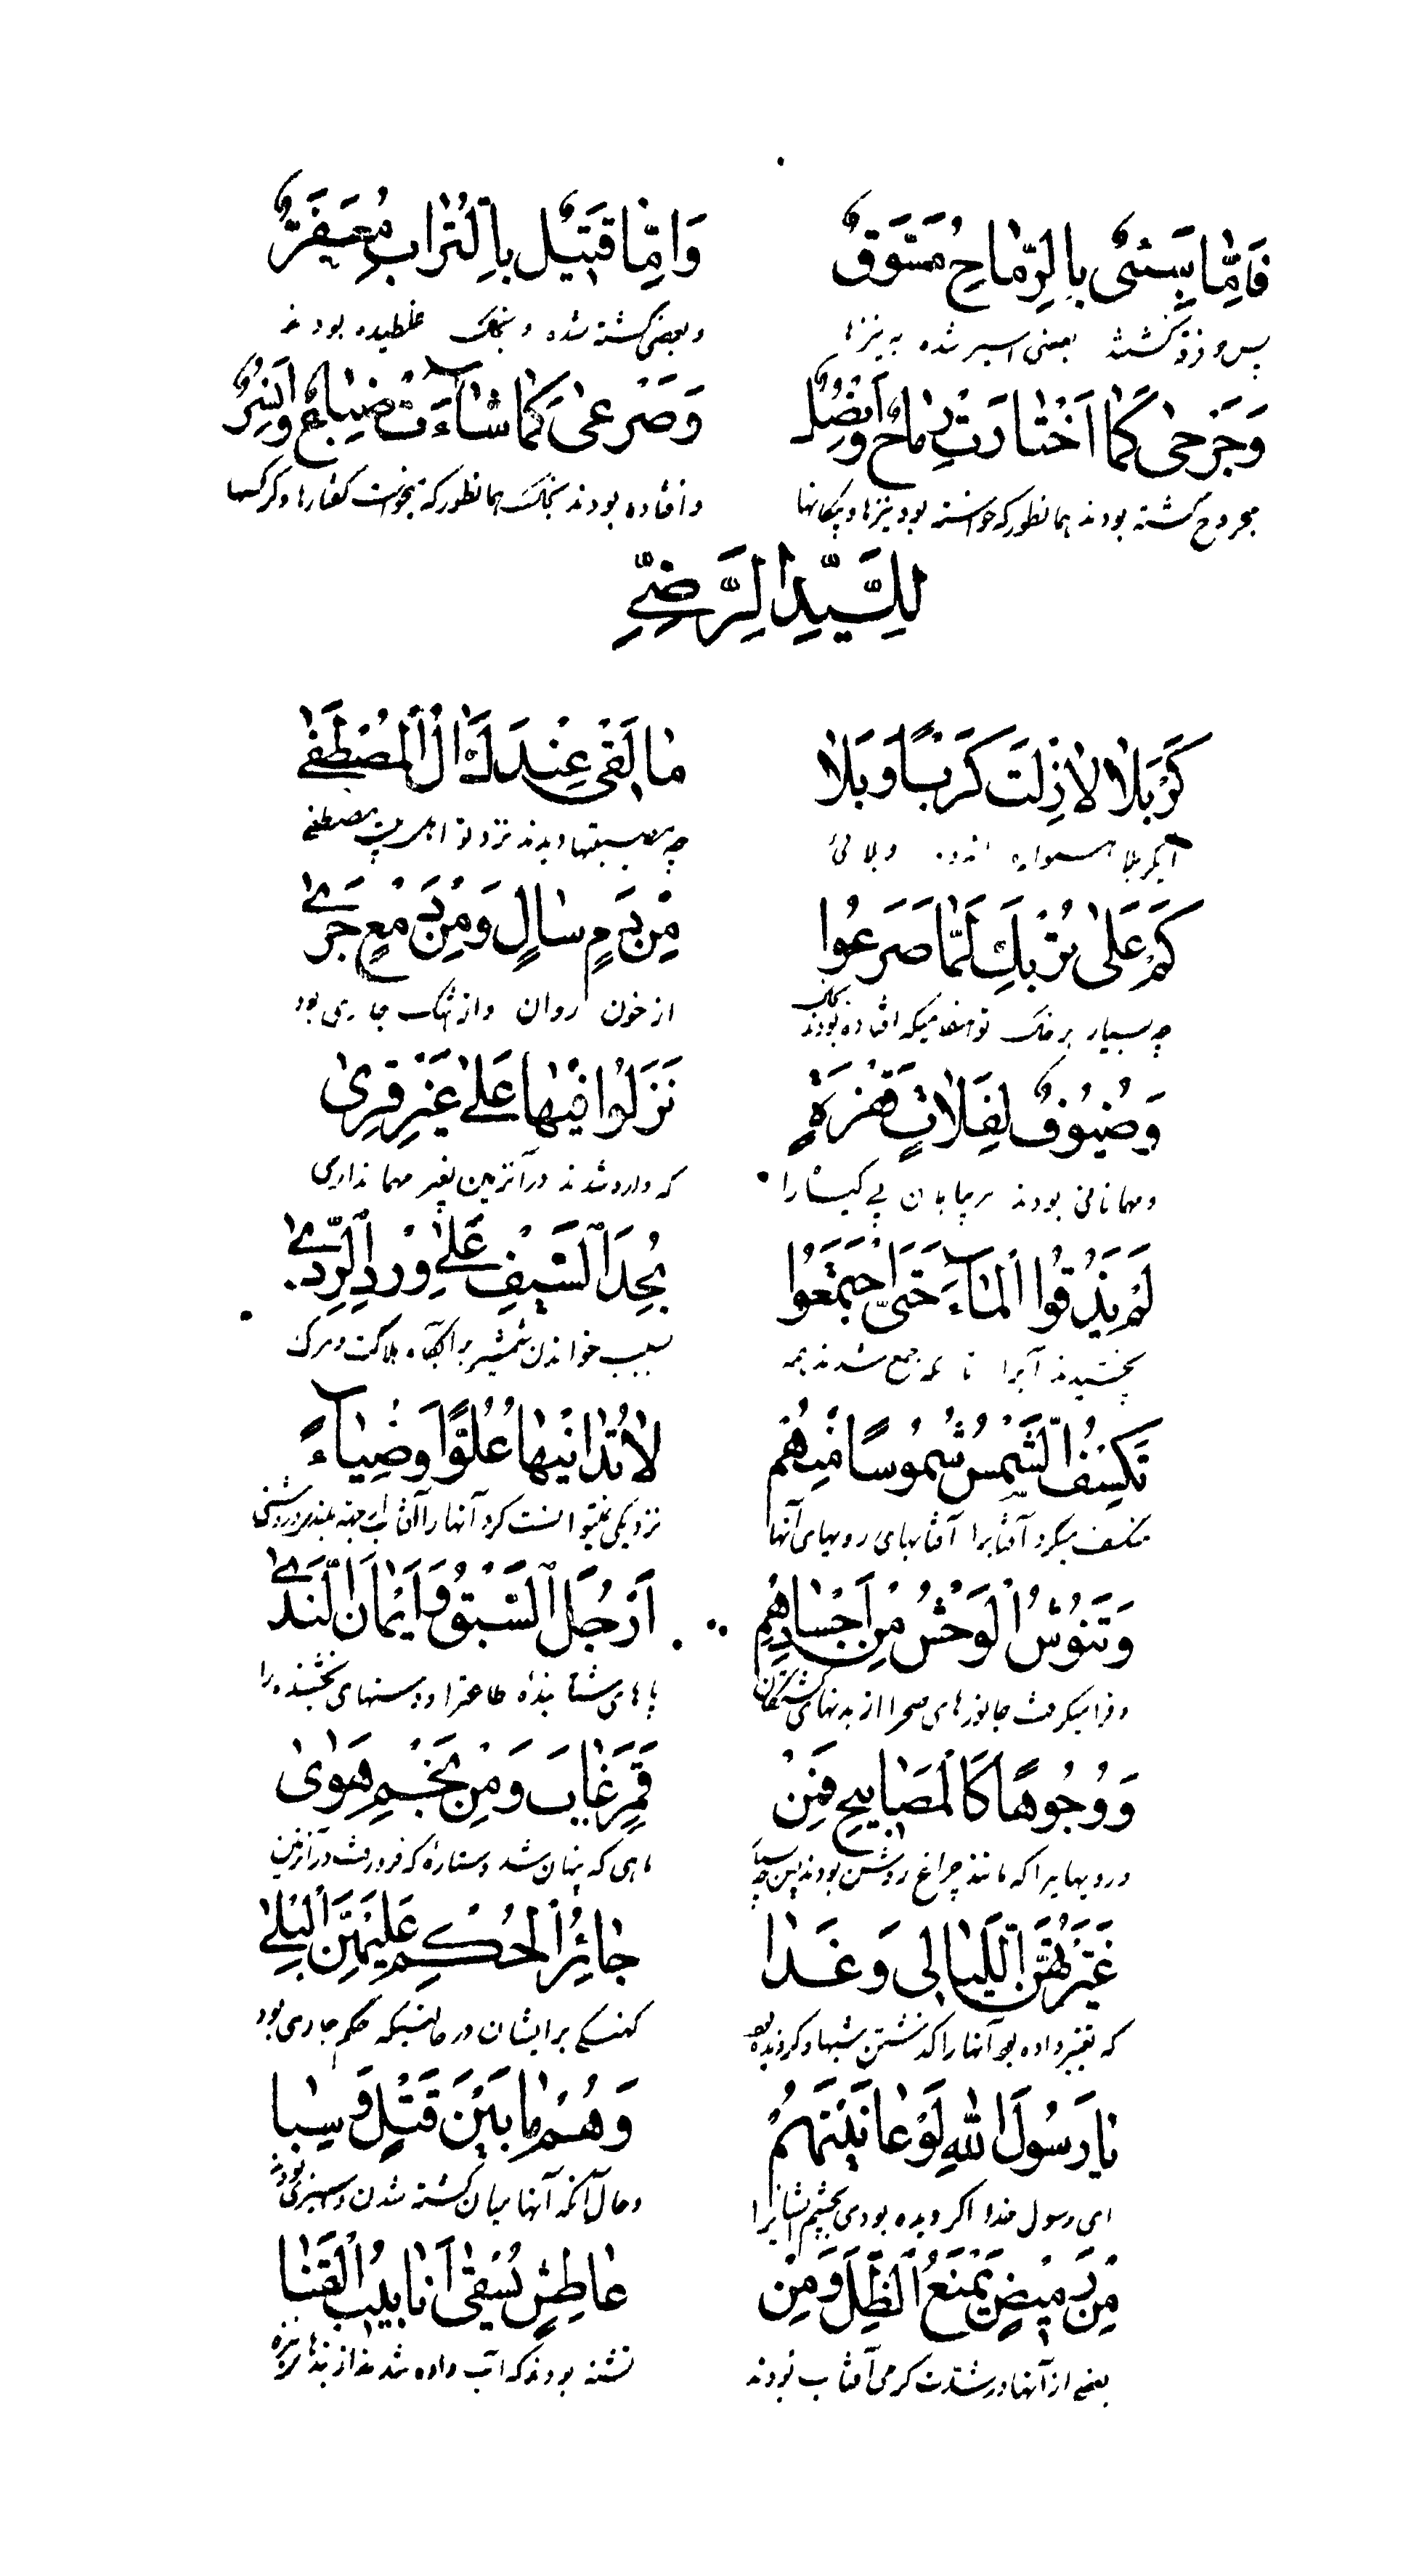 فَاِمّٰا سَبِیٌّ بِالرِّمٰاحِ مَسَوَّقٌ وَاِمّٰا قَتیٖلٌ بِالتُّرٰابِ مُعَفَّرٌ
بعضی اسیر شده به نیزها وبعضی کشته شده وبخاک غلطیده بودند
وَجَرْحیٰ کَمٰا اَخْتٰارَتْ رِمٰاحٌ وَاَنْصُلٌ وَصَرْعیٰ کَمٰا شٰآءَتْ ضِبٰاعٌ وَاَنْسُرٌ
مجروح گشته بودند همانطور که خواسته بود نیزها وپیکانها وافتاده بودند بخاک همانطور که بخواست کفتارها وکرکسها
لِلسَّیِّدِ الرَّضِیِّ
کَرْبَلٰا لٰا زِلْتِ کَرْبًا وَبَلٰا مٰا لَقیٖ عِنْدَكِ اٰلُ الْمُصْطَفیٰ
ایکربلا همواره اندوه وبلائی چه مصیبتها دیدند نزد تو اهل بیت مصطفی
کَمْ عَلیٰ تُرْبِكِ لَمّٰا صَرَعُوا مِنْ دَمٍ سٰالٍ وَمِنْ دَمْعٍ جَریٰ
چه بسیار بر خاک تو هنگامیکه افتاده بودند بخاک از خون روان واز اشک جاری بود
وَضُیُوفٌ لِفَلٰاتٍ قَفْرَةٍ نَزَلُوا فیٖهٰا عَلیٰ غَیْرِ قِریٰ
ومهمانانی بودند بر بیابان بی گیاه را که وارد شدند در آنزمین بغیر مهمانداری
لَمْ یَذُوقُوا الْمٰآءَ حَتّیٰ اجْتَمَعُوا بِحِدَا السَّیْفِ عَلیٰ وِرْدِ الرَّدیٰ
نچشیدند آبرا تا که جمع شدند همه بسبب خواندن شمشیر بر آبگاه هلاکت ومرگ
تَکْسِفُ الشَّمْسُ شُمُوسًا مِنْهُمْ لٰا تُدٰانیٖهٰا عُلُوًّا وَضِیٰآءً
منکسف میکرد آفتابرا آفتابهای رویهای آنها نزدیکی نمیتوانست کرد آنها را آفتاب از جهة بلندی وروشنی
وَتَنُوشُ الْوَحْشُ مِنْ اَجْسٰادِهِمْ اَرْجُلَ السَّبْقِ وَاَیْمٰانَ النَّدیٰ
وفرا میگرفت جانورهای صحرا از بدنهای کشتگان پاهای شتابنده طاعترا ودستهای بخشنده را
وَوُجُوهًا کَالْمَصٰابیٖحِ فَمِنْ قَمَرٍ غٰابَ وَمِنْ نَجْمٍ هَویٰ
ورویهایرا که مانند چراغ روشن بودند پس چه بسیار ماهی که پنهان شد وستارهٔ که فرو رفت در آنزمین
غَیَّرَتْهُنَّ اللَّیٰالی وَغَدٰا جٰائِرَ الْحُکْمِ عَلَیْهِنَّ الْبِلیٰ
که تغییر داده بود آنها را گذشتن شبها وگردیده بود کهنگی بر ایشان در حالتیکه حکم جاری بود
یٰا رَسُولَ اللّٰهِ لَوْ عٰایَنْتَهُمْ وَهُمْ مٰا بَیْنَ قَتْلٍ وَسِبٰا
ای رسول خدا اگر دیده بودی بچشم ایشانرا وحال آنکه آنها میان کشته شدن واسیری بودند
مِنْ رَمیٖضٍ یُمْنَعُ الظِّلَّ وَمِنْ عٰاطِشٍ یُسْقیٰ اَنٰابیٖبَ الْقَنٰا
بعضی از آنها در شدت گرمی آفتاب بودند تشنه بودند که آب داده شدند از بندهای نیزه